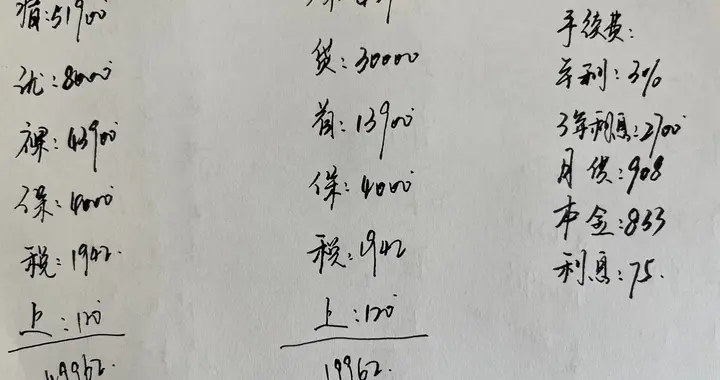 指:51900
优:8000
裸:43900
保:4000
税:1942.
上:120
49962.
贷:30000
首:13900
保:4000
税:1942
上:120
19962
手续费:
年利:3%
3年利息:2700
月供:908
本金:833
利息:75.